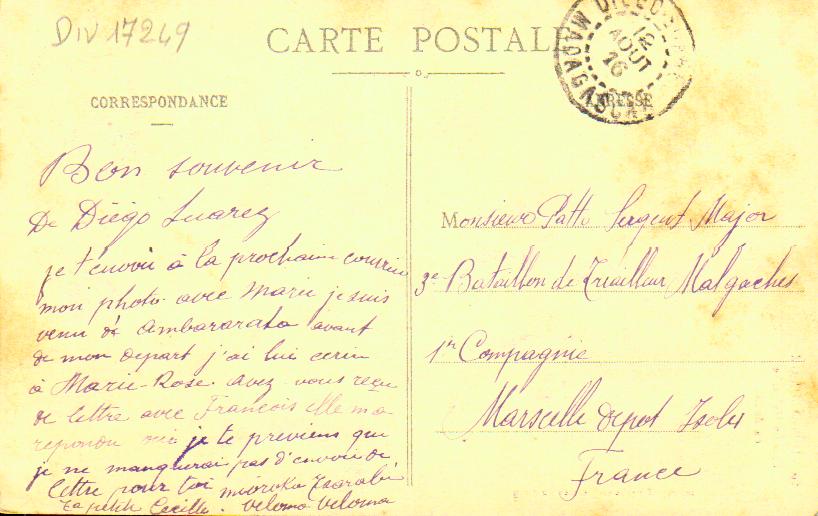 Div 17249
CARTE POSTALE
DIEGO-SUAREZ
12
AOUT
16
MADAGASCAR
CORRESPONDANCE
ADRESSE
Bon souvenir
De Diégo Suarez
je t'envoii à la prochaine courrier
mon photo avec Marie je suis
venu de Ambararata avant
de mon depart j'ai lui ecrir
à Marie-Rose avez vous reçu
de lettre avec François elle m'a
repondu oui je te previens qui
je ne manqurai pas d'envoie de
lettre pour toi Tsarabé
Ta petite Cecille. Veloma Veloma
Monsieur Patte Sergent Major
3e Bataillon de Tirailleur Malgaches
1re Compagnie
Marseille depot Isolés
France